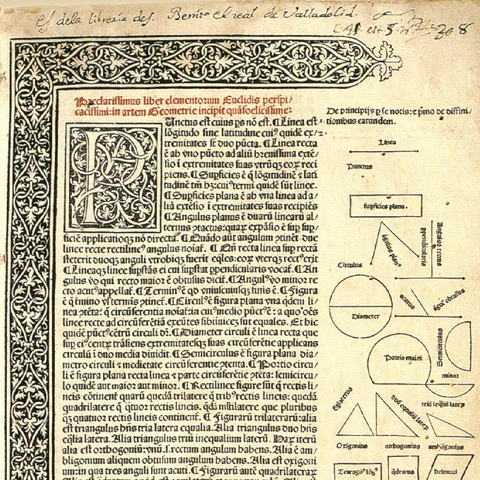 es dela libreria de s. Benito el real de Valladolid.
Preclarissimus liber elementorum Euclidis perspi/
cacissimi: in artem Geometrie incipit quãfoelicissime:
Punctus est cuius ps nõ est. ¶ Linea est
lõgitudo sine latitudine cui⁹ quidẽ ex/
tremitates sũt duo pũcta. ¶ Linea recta
ẽ ab vno pũcto ad aliũ breuissima extẽ/
sio ĩ extremitates suas vtrũqꝫ eoꝝ reci
piens. ¶ Supficies ẽ q̃ lõgitudinẽ ⁊ lati
tudinẽ tm̃ hꝫ: cui⁹ termi quidẽ sũt linee.
¶ Supficies plana ẽ ab vna linea ad a/
liã extẽsio ĩ extremitates suas recipiẽs
¶ Angulus planus ẽ duarũ linearũ al/
ternus ꝯtactus: quaꝝ expãsio ẽ sup sup/
ficiẽ applicatioqꝫ nõ directa. ¶ Quãdo aut angulum ꝯtinẽt due
linee recte rectiline⁹ angulus noiat̃. ¶ Qñ recta linea sup rectã
steterit duoqꝫ anguli vtrobiqꝫ fuerit eq̃les: eoꝝ vterqꝫ rect⁹ erit
¶ Lineaqꝫ linee supstãs ei cui supstat ppendicularis vocat̃. ¶ An
gulus vo qui recto maior ẽ obtusus dicit̃. ¶ Angul⁹ vo minor re
cto acut⁹ appellat̃. ¶ Termin⁹ ẽ qd vniuscuiusqꝫ finis ẽ. ¶ Figura
ẽ q̃ tmino vl̃ termis ꝯtinet̃. ¶ Circul⁹ ẽ figura plana vna qdem li/
nea ꝯtẽta: q̃ circũferentia noiat̃: in cui⁹ medio pũct⁹ ẽ: a quo oẽs
linee recte ad circũferẽtiã exeũtes sibiinuicẽ sũt equales. Et hic
quidẽ pũct⁹ cẽtrũ circuli dr̃. ¶ Diameter circuli ẽ linea recta que
sup ei⁹ centꝝ trãsiens extremitatesqꝫ suas circũferẽtie applicans
circulũ ĩ duo media diuidit. ¶ Semicirculus ẽ figura plana dia/
metro circuli ⁊ medietate circũferentie ꝯtenta. ¶ Portio circu/
li ẽ figura plana recta linea ⁊ parte circũferẽtie ꝯtẽta: semicircu/
lo quidẽ aut maior aut minor. ¶ Rectilinee figure sũt q̃ rectis li/
neis cõtinent̃ quarũ quedã trilatere q̃ trib⁹ rectis lineis: quedã
quadrilatere q̃ quatuor rectis lineis. qdã mltilatere que pluribus
qꝫ quatuor rectis lineis continent̃. ¶ Figurarũ trilaterarũ: alia
est triangulus hñs tria latera equalia. Alia triangulus duo hñs
eq̃lia latera. Alia triangulus triũ inequalium laterũ. Haꝝ iterũ
alia est orthogoniũ: vnũ.s. rectum angulum habens. Alia ẽ am/
bligonium aliquem obtusum angulum habens. Alia est oxigoni
um: in qua tres anguli sunt acuti. ¶ Figurarũ autẽ quadrilateraꝝ
De principijs p se notis: ⁊ pmo de diffini/
tionibus earundem.
Linea
Punctus
supficies plana.
Circulus
Diameter
acutus
ãgl's obtusus
Semicirculus
Portio maior
minor
Oxigonius
orthogonius
ambligonius